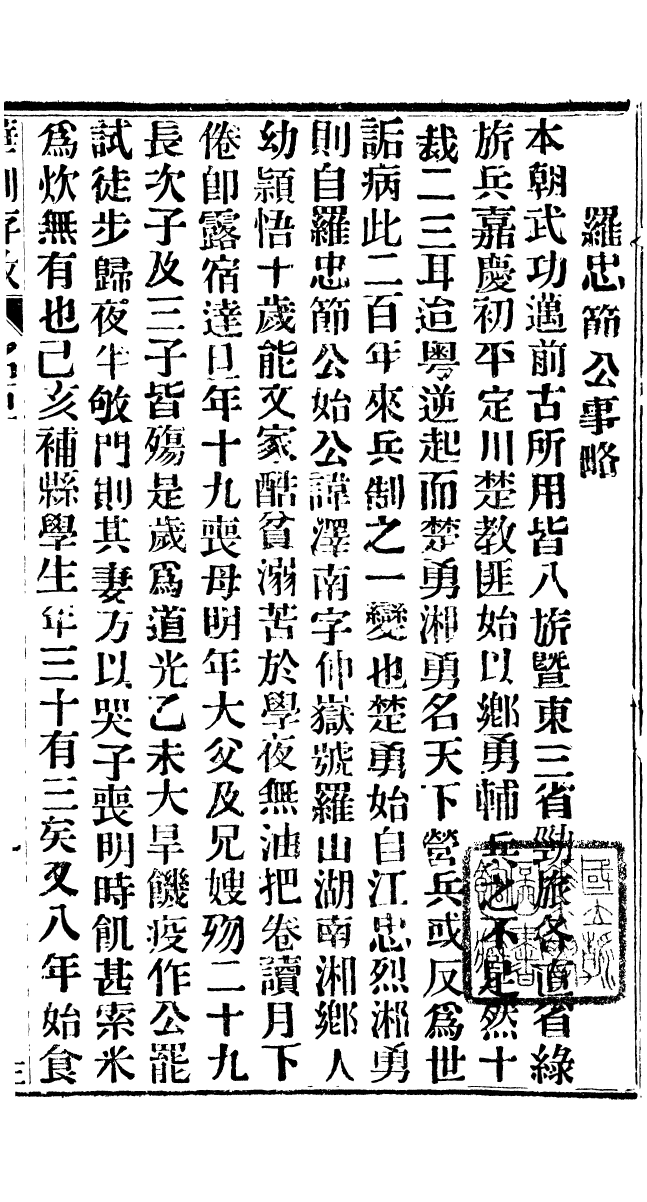 羅忠節公事略
本朝武功邁前古所用皆八旂暨東三省勁旅各直省綠
旂兵嘉慶初平定川楚教匪始以鄉勇輔兵之不足然十
裁二三耳迨粵逆起而楚勇湘勇名天下營兵或反爲世
詬病此二百年來兵制之一變也楚勇始自江忠烈湘勇
則自羅忠節公始公諱澤南字仲嶽號羅山湖南湘鄉人
幼穎悟十歲能文家酷貧溺苦於學夜無油把卷讀月下
倦卽露宿達旦年十九喪母明年大父及兄嫂歿二十九
長次子及三子皆殤是歲爲道光乙未大旱饑疫作公罷
試徒步歸夜半敂門則其妻方以哭子喪明時飢甚索米
爲炊無有也己亥補縣學生年三十有三矣又八年始食